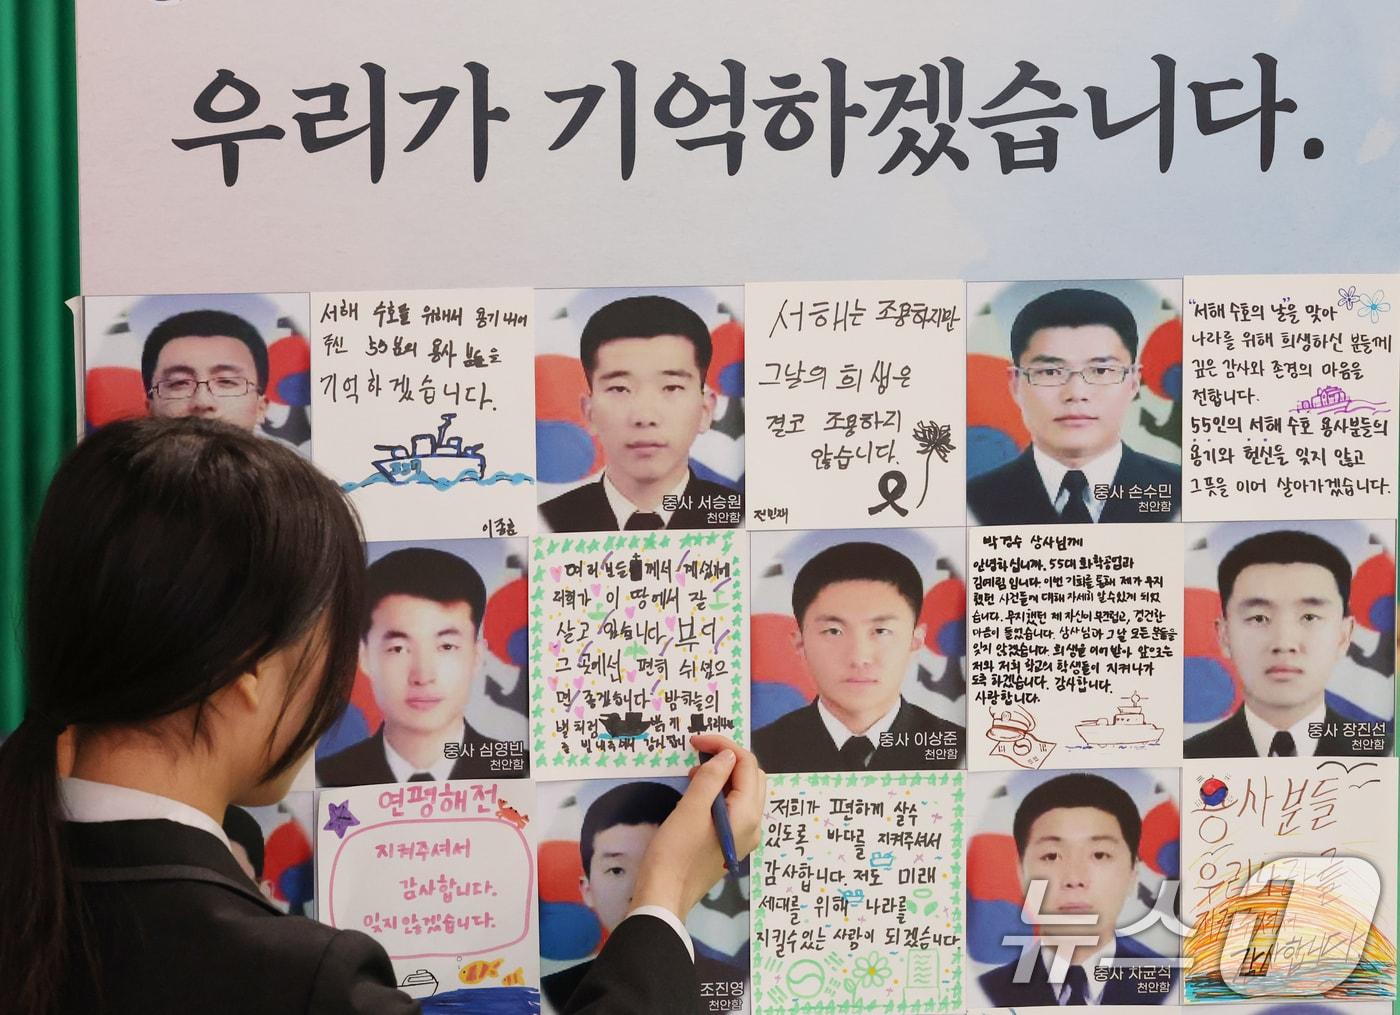 우리가 기억하겠습니다.
서해 수호를 위해서 용기 내어
주신 55 분의 용사 분들을
기억하겠습니다.
이종훈
중사 서승원
천안함
서해는 조용하지만
그날의 희생은
결코 조용하지
않습니다.
전민재
중사 손수민
천안함
"서해 수호의 날"을 맞아
나라를 위해 희생하신 분들께
깊은 감사와 존경의 마음을
전합니다.
55인의 서해 수호 용사분들의
용기와 헌신을 잊지 않고
그 뜻을 이어 살아가겠습니다.
중사 심영빈
천안함
여러분들 께서 계셨기에
저희가 이 땅에서 잘
살고 있습니다 부디
그 곳에선 편히 쉬셨으
면 좋겠습니다 밤하늘의
별처럼 밝게 우리나라
를
중사 이상준
천안함
박경수 상사님께
안녕하십니까. 55대 화학공업과
김예림입니다. 이번 기회를 통해 제가 무지
했던 사건들에 대해 자세히 알 수 있게 되었
습니다. 무지했던 제 자신이 부끄럽고, 경건한
마음이 들었습니다. 상사님과 그 날 모든 분들을
잊지 않겠습니다. 희생을 이어 받아 앞으로는
저와 저희 학교의 학생들이 지켜나가
도록 하겠습니다. 감사합니다.
사랑합니다.
중사 장진선
천안함
연평해전
지켜주셔서
감사합니다.
잊지 않겠습니다.
조진영
천안함
저희가 편하게 살수
있도록 바다를 지켜주셔서
감사합니다. 저도 미래
세대를 위해 나라를
지킬수있는 사람이 되겠습니다
중사 차균석
천안함
용사분들
우리나라를
지켜주셔서
감사합니다.
뉴스1